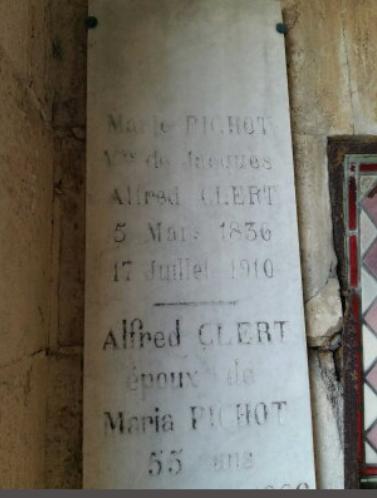 Marie PICHOT
Vve de Jacques
Alfred CLERT
5 Mars 1836
17 Juillet 1910
Alfred CLERT
époux de
Maria PICHOT
55 ans